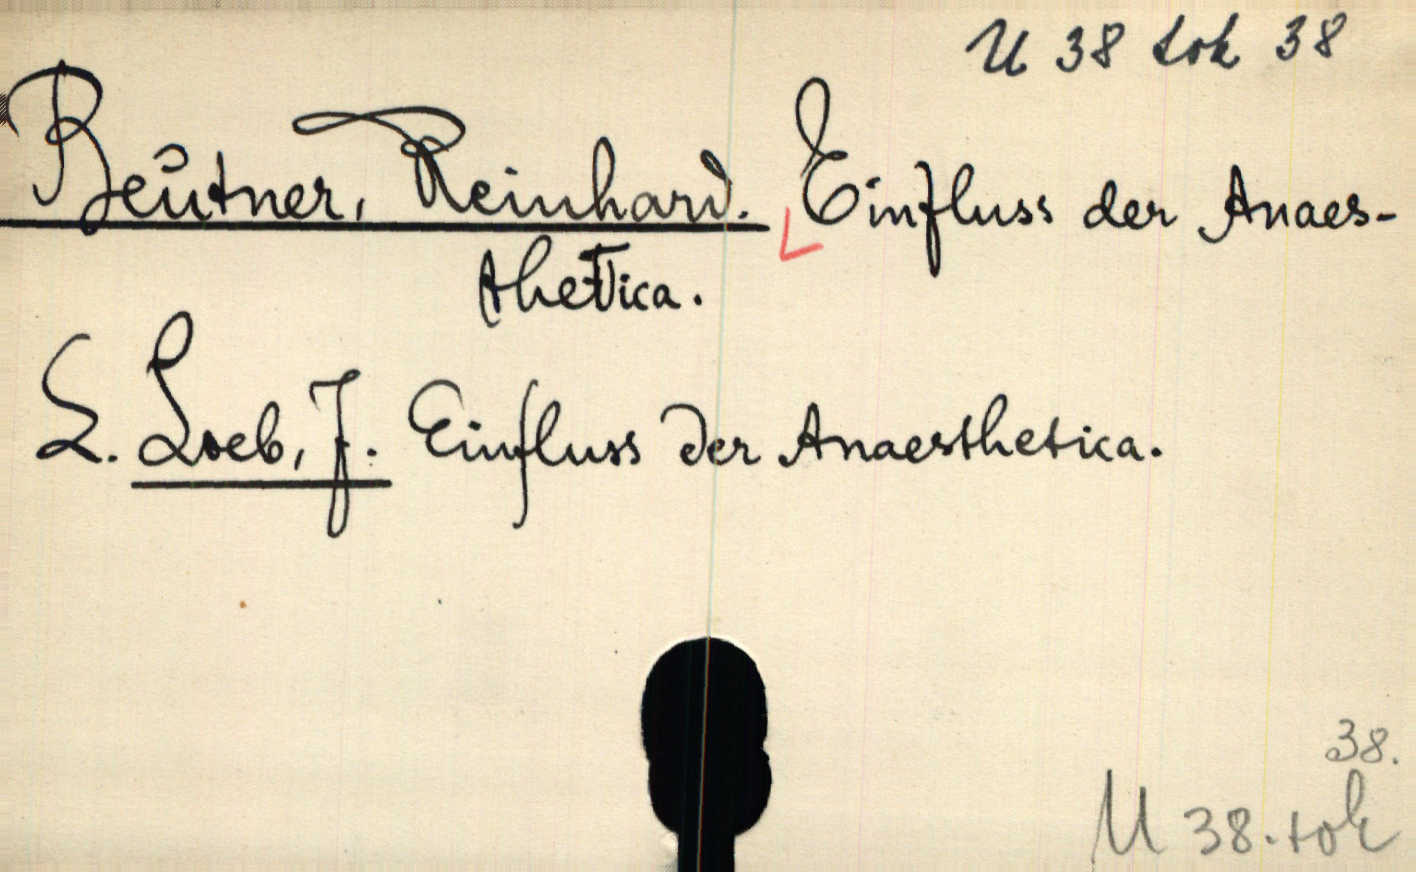 U 38 tok 38
Beutner, Reinhard. Einfluss der Anaes-
thetica.
S. Loeb, J. Einfluss der Anaesthetica.
38.
U 38. tok